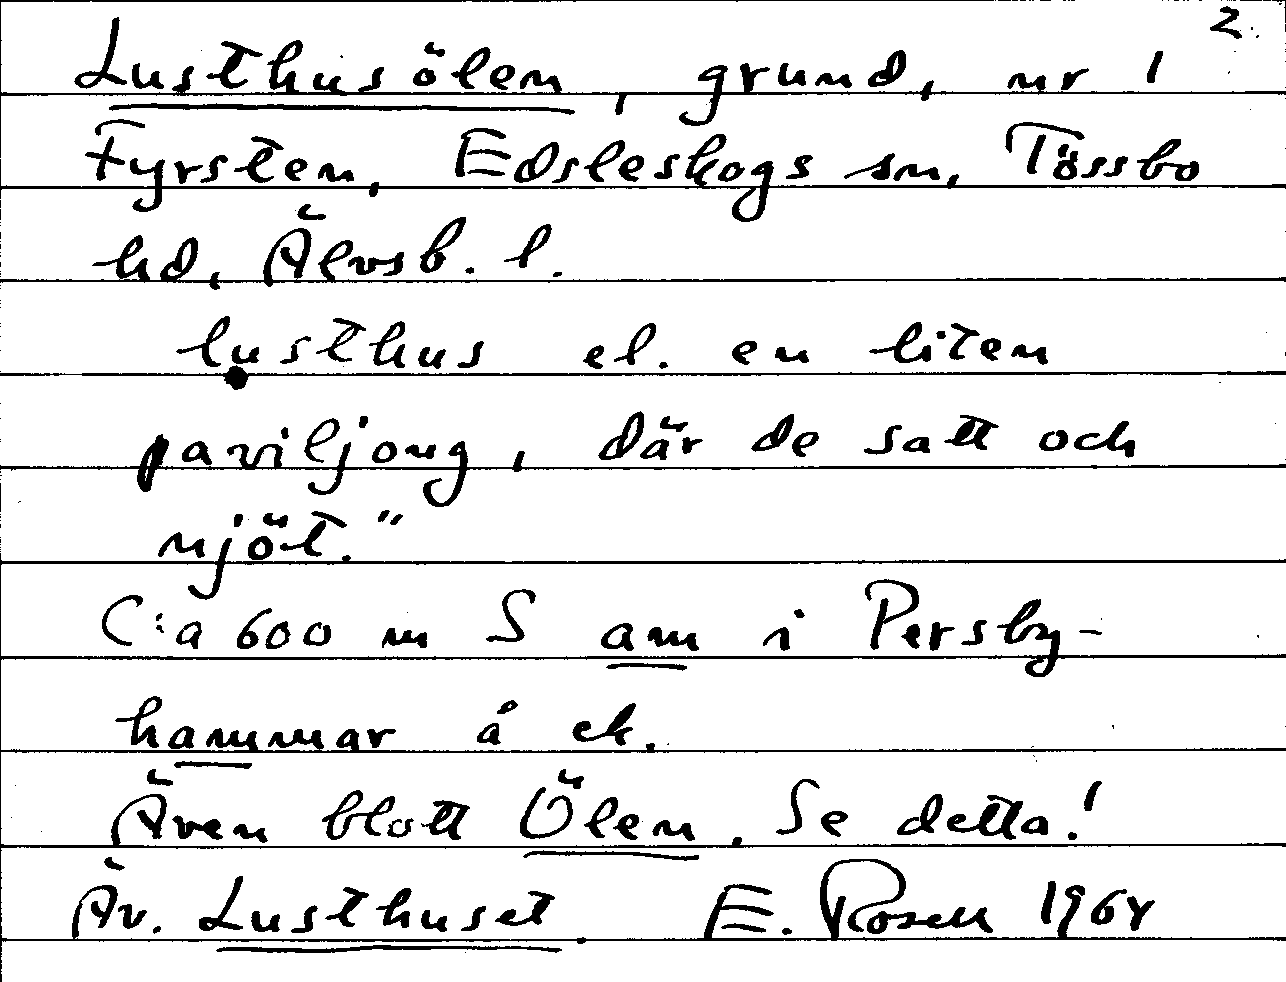 2.
Lusthusölen, grund, nr 1
Fyrsten, Edsleskogs sn, Tössbo
hd, Älvsb. l.
lusthus el. en liten
paviljong, där de satt och
njöt."
C:a 600 m S am i Persby-
hammar å ek.
Även blott Ölen. Se detta!
Äv. Lusthuset. E. Rosell 1964